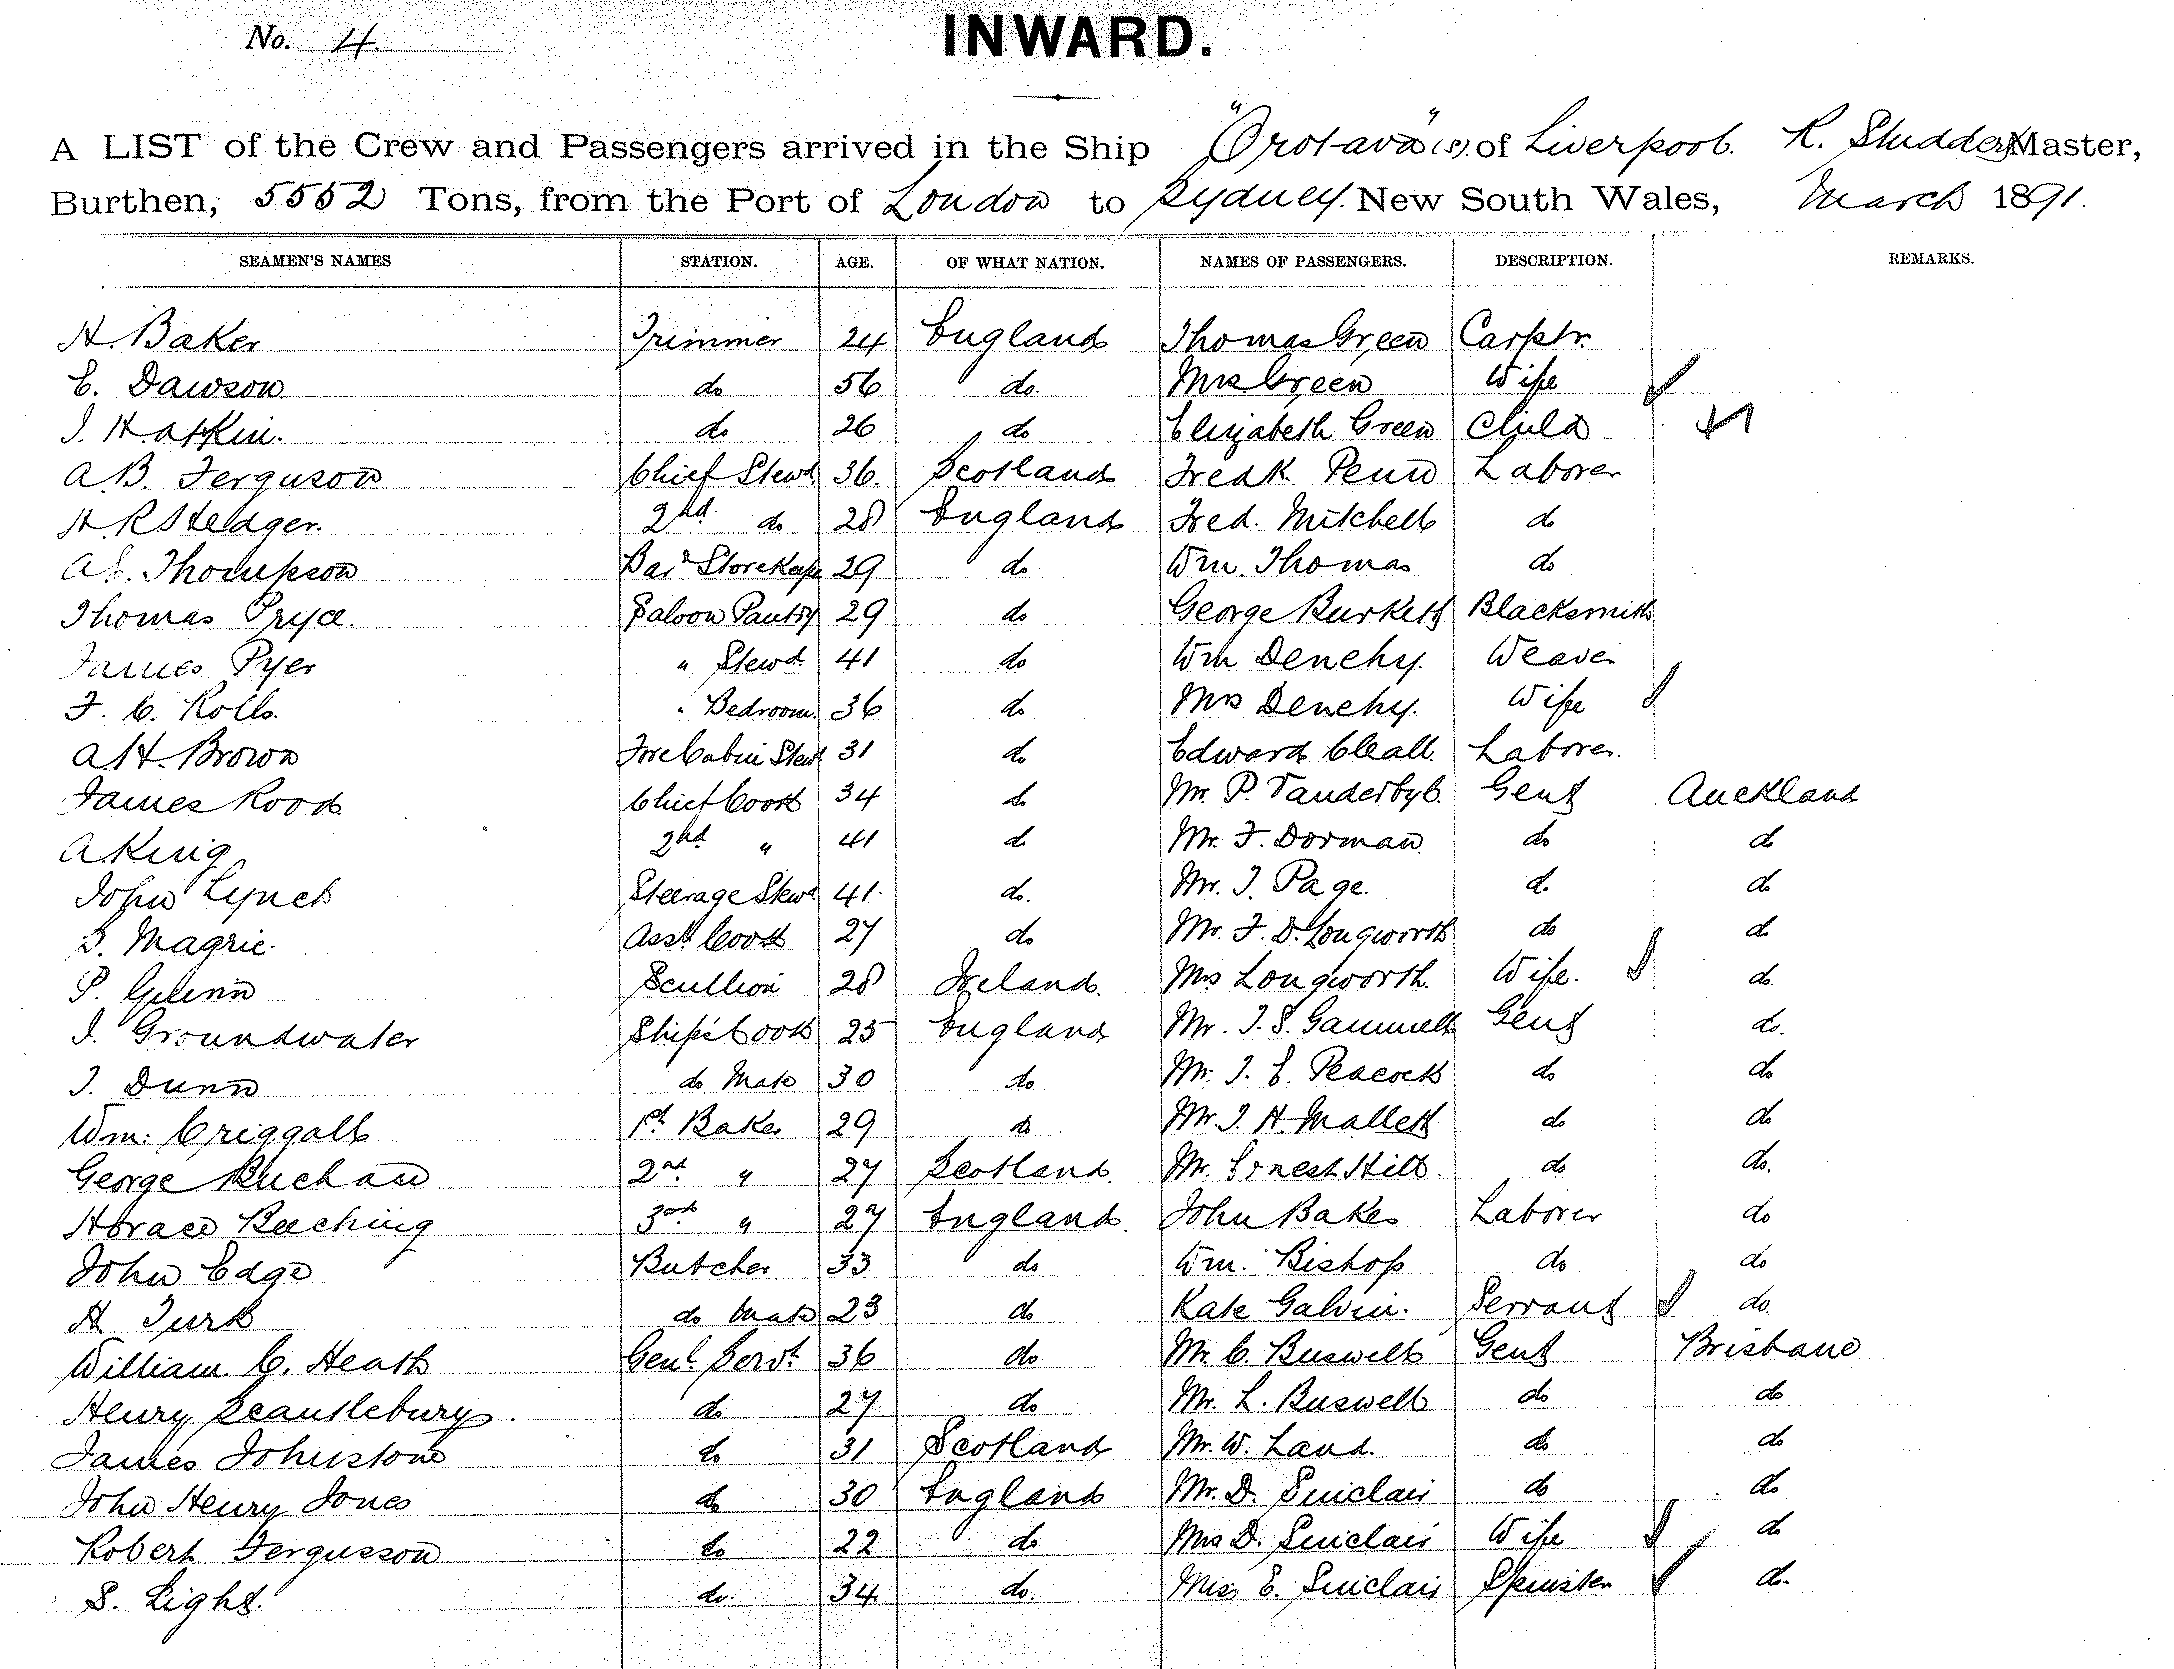 No. 4
INWARD.
A LIST of the Crew and Passengers arrived in the Ship "Orotava" (s) of Liverpool. R. Studdert Master,
Burthen, 5552 Tons, from the Port of London to Sydney. New South Wales, March 1891.
SEAMEN'S NAMES STATION. AGE. OF WHAT NATION. NAMES OF PASSENGERS. DESCRIPTION. REMARKS.
H. Baker Trimmer 24 England Thomas Green Carptr.
E. Dawson do 56 do. Mrs Green Wife
do 26 do Elizabeth Green Child
A.B. Ferguson Chief Stewd 36. Scotland Fredk Penn Laborer
2nd do 28 England Fred. Mitchell do
Thompson 29 do Wm. Thomas do
Thomas Pryce. Saloon Pantry 29 do George Burkett Blacksmith
James Pyer " Stewd 41 do Wm Denehy. Weaver
F. C. Rolls. " Bedroom. 36 do Mrs Denehy. Wife
A H. Brown Fore Cabin Stewd 31 do Edward Cleall. Laborer.
James Rood Chief Cook 34 do Mr. P. Vanderbyl. Gent Auckland
A King 2nd " 41 do Mr. F. Dorman do do
John Lynch Steerage Stewd 41. do. Mr. J. Page. do do
Magrie. Asst. Cook 27 do Mr. F. D. Longworth do do
P. Glinn Scullion 28 Ireland. Mrs Longworth. Wife. do.
J. Groundwater Ship's Cook 25 England Mr. J. S. Gammell Gent do.
J. Dunn do Mate 30 do Mr. J. E. Peacock do do
Wm. Criggall 1st Baker 29 do Mr. J. H. Mallett do do
George Buchan 2nd " 27 Scotland. Mr. Ernest Hill do do.
Horace Beeching 3rd " 27 England. John Baker Laborer do
John Edge Butcher 33 do Wm. Bishop do do
H Turk do Mate 23 do Kate Galvin. Servant do.
William C. Heath Genl. Servt. 36 do Mr. C. Buswell Gent Brisbane
Henry Scantlebury. do 27 do Mr. L. Buswell do do
James Johnstone do 31 Scotland Mr. W. Land. do do
John Henry Jones do 30 England Mr. D. Sinclair do do
Robert Fergusson do 22 do Mrs D. Sinclair Wife do
S. Light. do. 34. do. Miss E. Sinclair Spinster do.